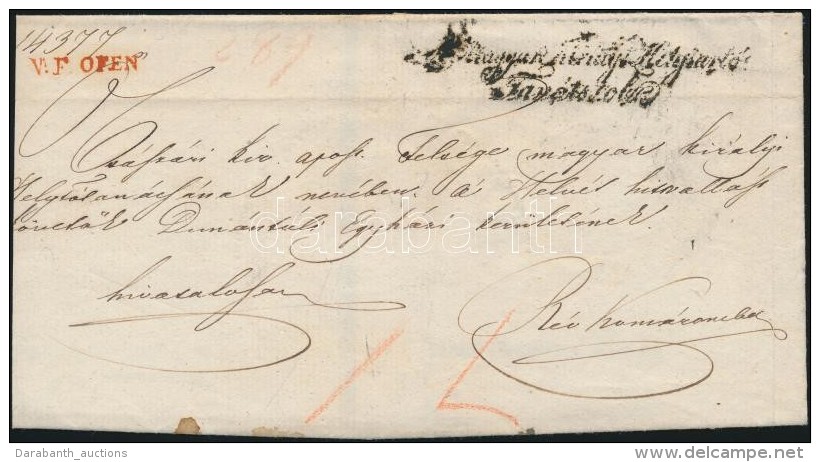 14377
V. P. OFEN
Magyar királyi Helytartó
Tanátstol
Császári kir. apost. Felsége magyar királyi
Helytótanácsának nevében. A Helvét hitvallást
követők Dunántuli Egyházi kerületének
hivatalosan
Rév Komáromba
darabanth
Darabanth_auctions
DELCAMPE.NET